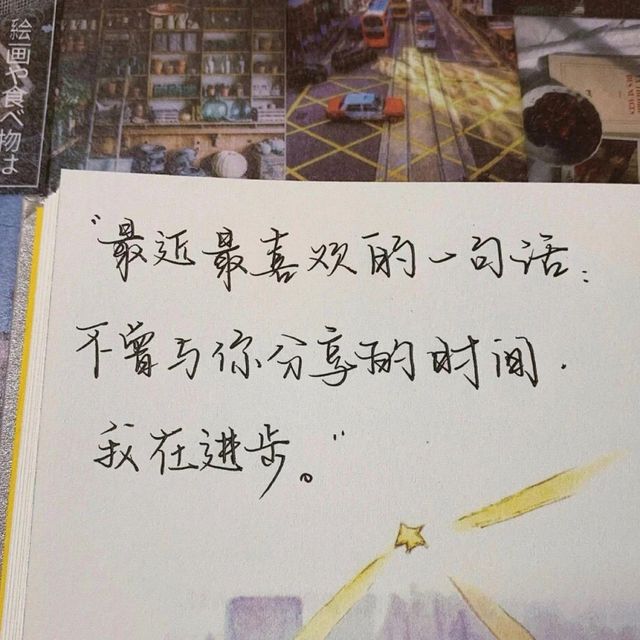 絵画や食べ物は
"最近最喜欢的一句话:
不曾与你分享的时间.
我在进步。"